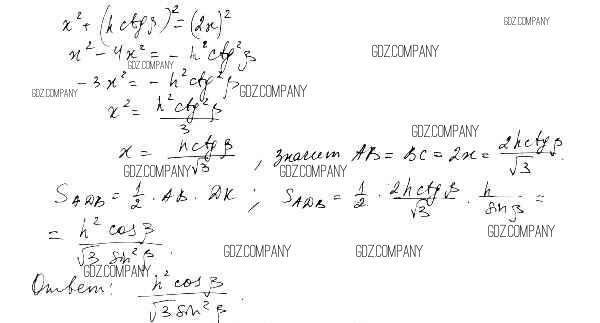 x² + (h ctg β)² = (2x)²
GDZ.COMPANY
x² - 4x² = - h² ctg² β
GDZ.COMPANY
GDZ.COMPANY
- 3x² = - h² ctg² β
GDZ.COMPANY
GDZ.COMPANY
x² = h² ctg² β / 3
GDZ.COMPANY
x = h ctg β / √3 , значит AB = BC = 2x = 2h ctg β / √3 .
GDZ.COMPANY
GDZ.COMPANY
S ADB = 1/2 · AB · DK ; S ADB = 1/2 · 2h ctg β / √3 · h / sin β =
GDZ.COMPANY
= h² cos β / √3 sin² β .
GDZ.COMPANY
GDZ.COMPANY
GDZ.COMPANY
Ответ: h² cos β / √3 sin² β .